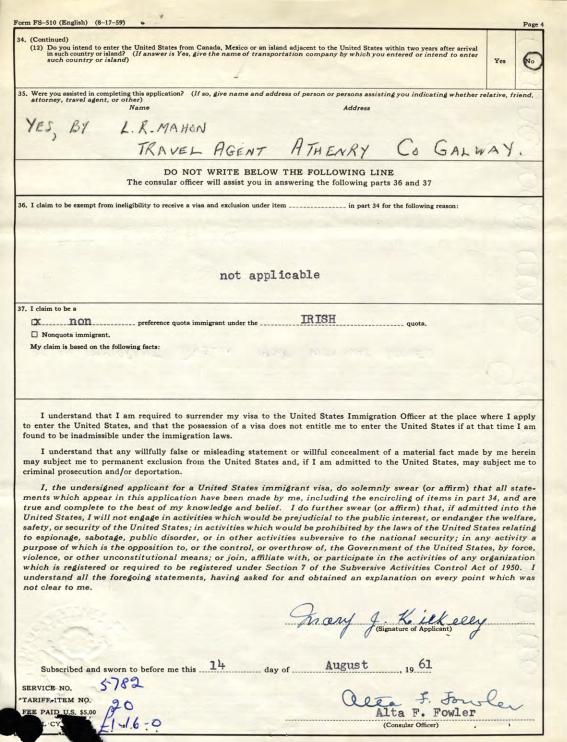 Form FS-510 (English) (8-17-59)
Page 4
34. (Continued)
(12) Do you intend to enter the United States from Canada, Mexico or an island adjacent to the United States within two years after arrival
in such country or island? (If answer is Yes, give name of transportation company by which you entered or intend to enter
such country or island)
Yes
No
35. Were you assisted in completing this application? (If so, give name and address of person or persons assisting you indicating whether relative, friend,
attorney, travel agent, or other)
Name Address
YES, BY L.R. MAHON
TRAVEL AGENT ATHENRY Co GALWAY.
DO NOT WRITE BELOW THE FOLLOWING LINE
The consular officer will assist you in answering the following parts 36 and 37
36. I claim to be exempt from ineligibility to receive a visa and exclusion under item ____________ in part 34 for the following reason:
not applicable
37. I claim to be a
☐ x non preference quota immigrant under the IRISH quota.
☐ Nonquota immigrant.
My claim is based on the following facts:
I understand that I am required to surrender my visa to the United States Immigration Officer at the place where I apply
to enter the United States, and that the possession of a visa does not entitle me to enter the United States if at that time I am
found to be inadmissible under the immigration laws.
I understand that any willfully false or misleading statement or willful concealment of a material fact made by me herein
may subject me to permanent exclusion from the United States and, if I am admitted to the United States, may subject me to
criminal prosecution and/or deportation.
I, the undersigned applicant for a United States immigrant visa, do solemnly swear (or affirm) that all state-
ments which appear in this application have been made by me, including the encircling of items in part 34, and are
true and complete to the best of my knowledge and belief. I do further swear (or affirm) that, if admitted into the
United States, I will not engage in activities which would be prejudicial to the public interest, or endanger the welfare,
safety, or security of the United States; in activities which would be prohibited by the laws of the United States relating
to espionage, sabotage, public disorder, or in other activities subversive to the national security; in any activity a
purpose of which is the opposition to, or the control, or overthrow of, the Government of the United States, by force,
violence, or other unconstitutional means; or join, affiliate with, or participate in the activities of any organization
which is registered or required to be registered under Section 7 of the Subversive Activities Control Act of 1950. I
understand all the foregoing statements, having asked for and obtained an explanation on every point which was
not clear to me.
Mary J. Kilkelly
(Signature of Applicant)
Subscribed and sworn to before me this 14 day of August, 19 61
SERVICE NO. 5782
TARIFF ITEM NO. 20
FEE PAID U.S. $5.00
L CY £1-16-0
Alta F. Fowler
Alta F. Fowler
(Consular Officer)